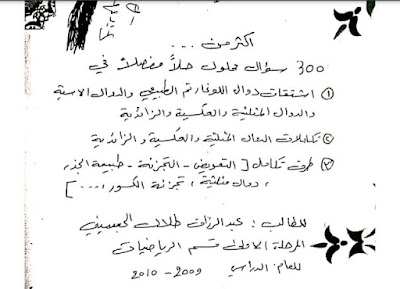 اكثر من ...
300 سؤال محلول حلاً مفصلاً في
① اشتقاقات دوال اللوغارتم الطبيعي والدوال الاسية
والدوال المثلثية والعكسية والزائدية
② تكاملات الدوال المثلثية والعكسية والزائدية
③ طرق تكامل [ التعويض - التجزئة - طبيعة الجذر
، دوال مثلثية ، تجزئة الكسور ، ... ]
للطالب : عبد الرزاق طلال
المرحلة الاولى قسم الرياضيات
للعام الدراسي 2009 - 2010